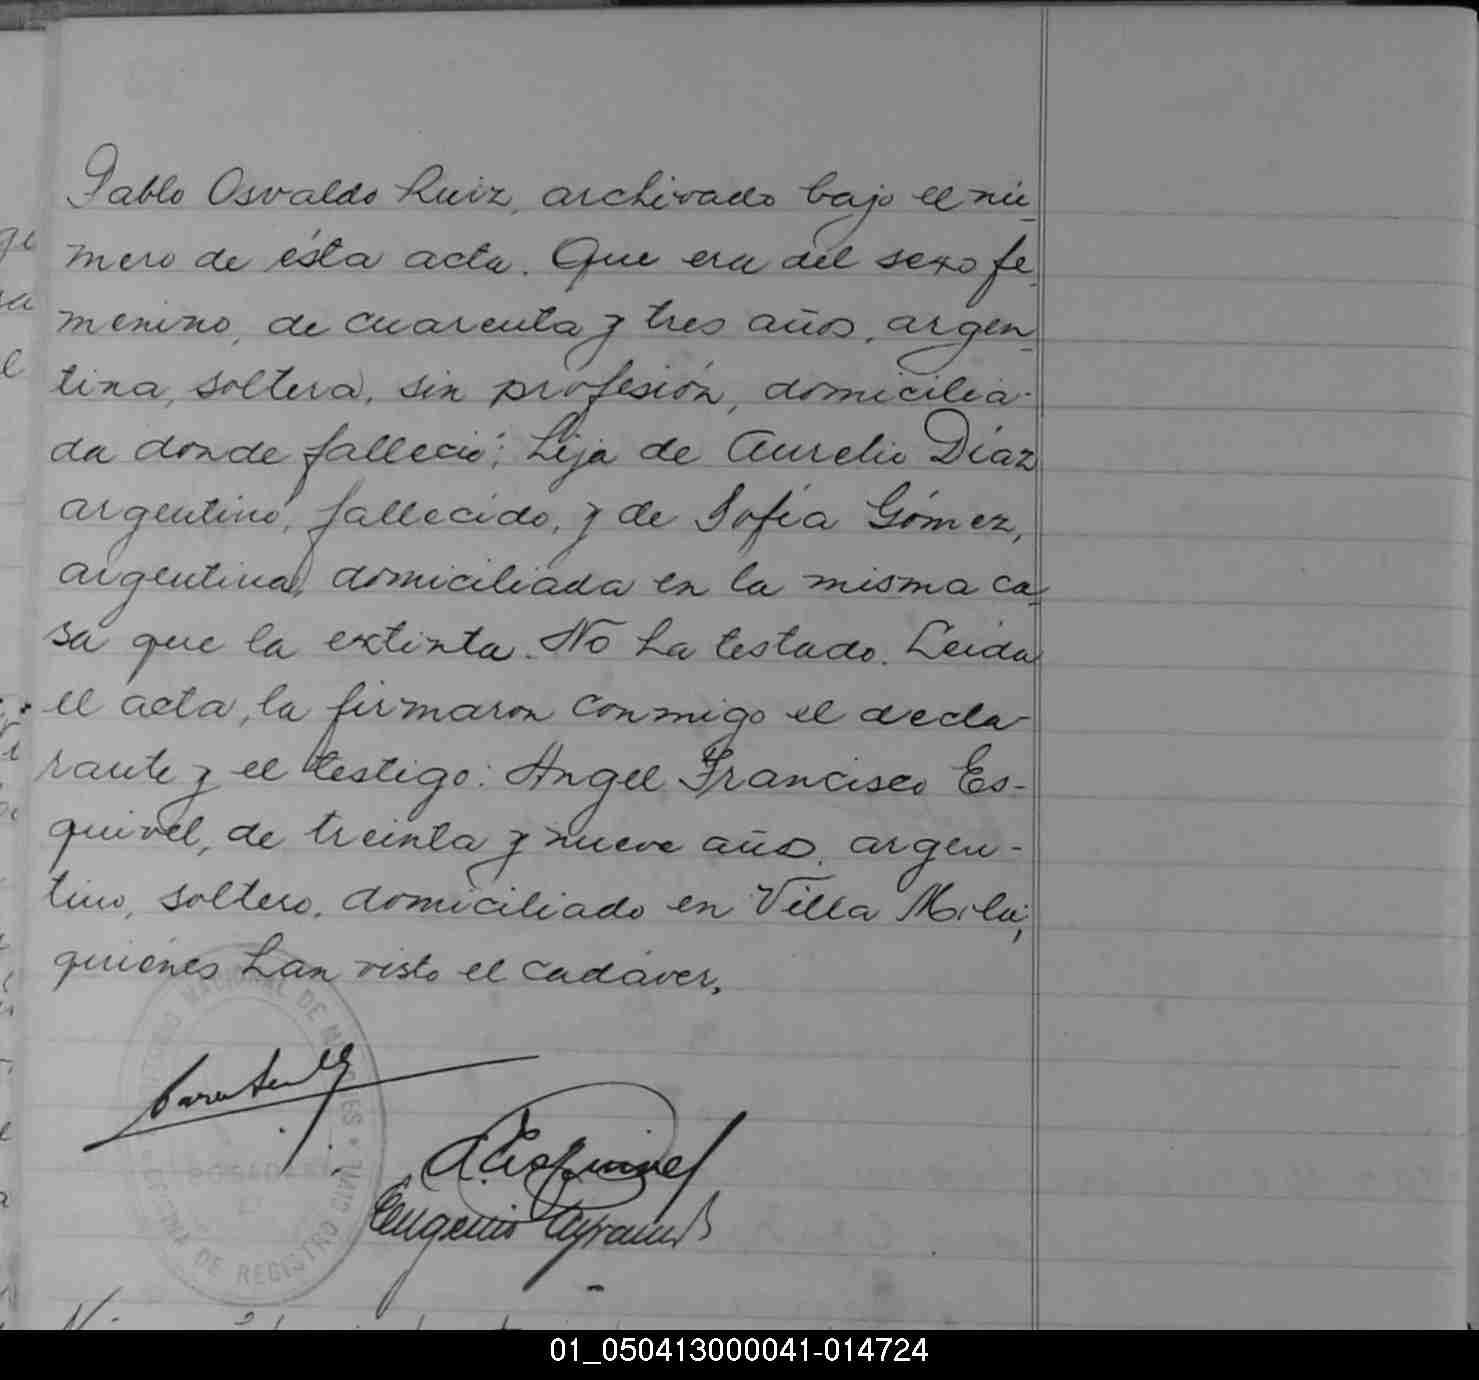 Pablo Osvaldo Ruiz, archivado bajo el nú-
mero de ésta acta. Que era del sexo fe-
menino, de cuarenta y tres años, argen-
tina, soltera, sin profesión, domicilia-
da donde falleció; hija de Aurelio Díaz
argentino, fallecido, y de Sofía Gómez,
argentina, domiciliada en la misma ca-
sa que la extinta. No ha testado. Leída
el acta, la firmaron conmigo el decla-
rante y el testigo: Angel Francisco Es-
quivel, de treinta y nueve años, argen-
tino, soltero, domiciliado en Villa
quiénes han visto el cadáver.
NACIONAL DE MISIONES
OFICINA DE REGISTRO CIVIL
POSADAS
A. Esquivel
Eugenio
01_050413000041-014724